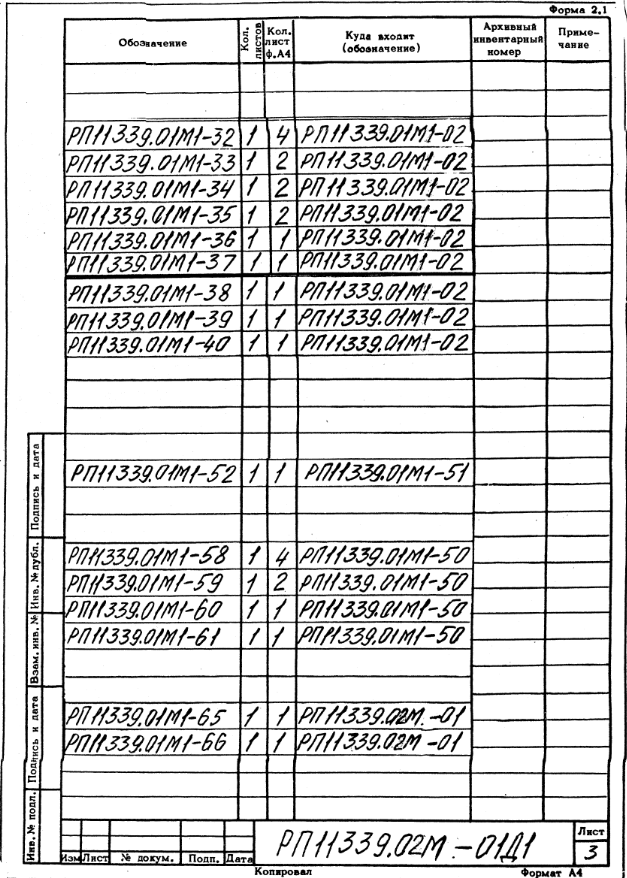 Форма 2.1
Обозначение Кол. листов Кол. лист ф.А4 Куда входит (обозначение) Архивный инвентарный номер Приме-чание
РП11339.01М1-32 1 4 РП11339.01М1-02
РП11339.01М1-33 1 2 РП11339.01М1-02
РП11339.01М1-34 1 2 РП11339.01М1-02
РП11339.01М1-35 1 2 РП11339.01М1-02
РП11339.01М1-36 1 1 РП11339.01М1-02
РП11339.01М1-37 1 1 РП11339.01М1-02
РП11339.01М1-38 1 1 РП11339.01М1-02
РП11339.01М1-39 1 1 РП11339.01М1-02
РП11339.01М1-40 1 1 РП11339.01М1-02
РП11339.01М1-52 1 1 РП11339.01М1-51
РП11339.01М1-58 1 4 РП11339.01М1-50
РП11339.01М1-59 1 2 РП11339.01М1-50
РП11339.01М1-60 1 1 РП11339.01М1-50
РП11339.01М1-61 1 1 РП11339.01М1-50
РП11339.01М1-65 1 1 РП11339.02М.-01
РП11339.01М1-66 1 1 РП11339.02М -01
Подпись и дата
Инв. № дубл.
Взам. инв. №
Подпись и дата
Инв. № подл.
Изм Лист № докум. Подп. Дата
РП11339.02М.-01Д1
Лист
3
Копировал Формат А4